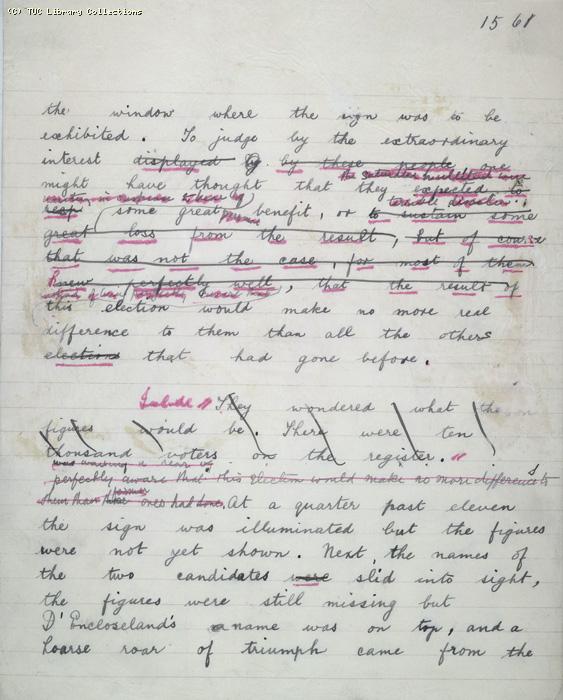 (C) TUC Library Collections
1568
the window where the sign was to be
exhibited. To judge by the extraordinary
interest displayed by by these people, one
might have thought that they expected to
terrible disaster
reap some great benefit, or to sustain some
great loss from the result, but of course
that was not the case, for most of them
knew perfectly well, that the result of
this election would make no more real
difference to them than all the others
elections that had gone before.
Include "They wondered what the
figures would be. There were ten
thousand voters on the register."
perfectly aware that this election would make no more difference to
them than former ones had done. At a quarter past eleven
the sign was illuminated but the figures
were not yet shown. Next, the names of
the two candidates were slid into sight,
the figures were still missing but
D'Encloseland's name was on top, and a
hoarse roar of triumph came from the